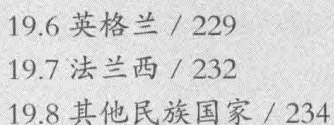 19.6 英格兰 / 229
19.7 法兰西 / 232
19.8 其他民族国家 / 234